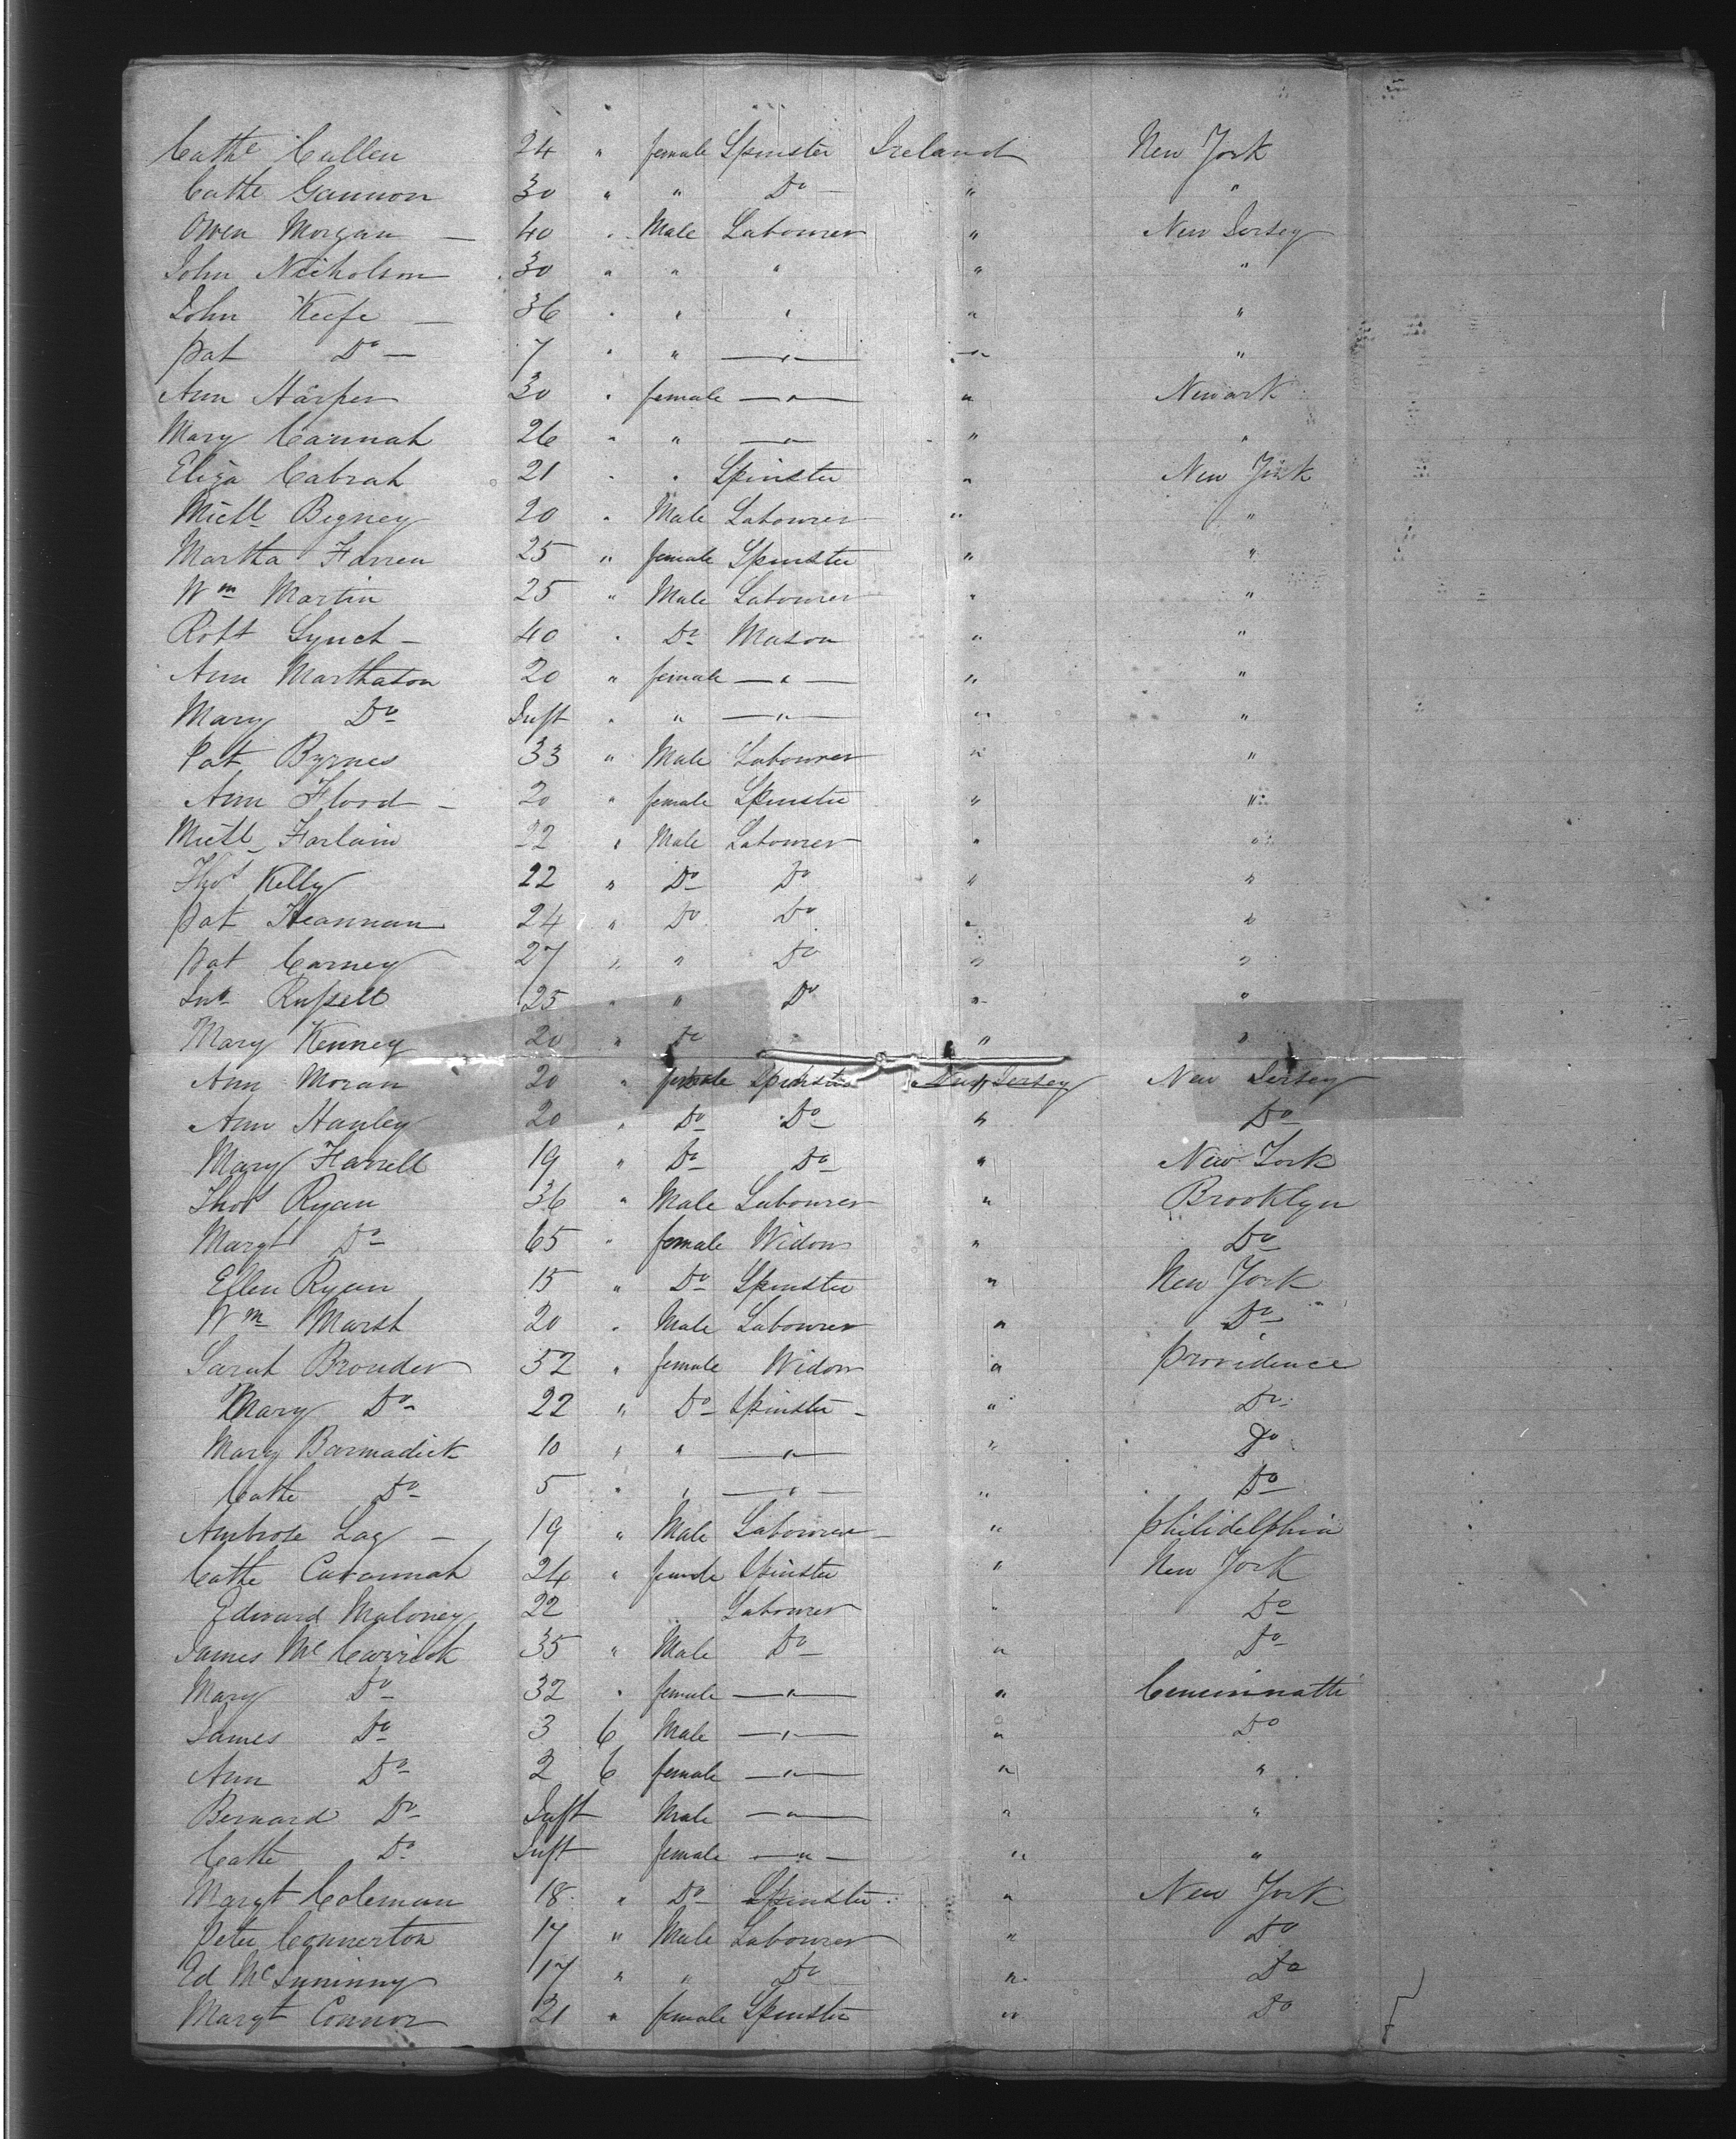 Cathe Cullen 24 " female Spinster Ireland New York
Cathe Gannon 30 " " Do " "
Owen Morgan 40 " Male Labourer " New Jersey
John Nicholson 30 " " " " "
John Keefe 36 " " " " "
Pat Do 7 " " " " "
Ann Harper 30 " female " " Newark
Mary Cannah 26 " " " " "
Eliza Cabrah 21 " " Spinster " New York
Michl Bigney 20 " Male Labourer " "
Martha Farren 25 " female Spinster " "
Wm Martin 25 " Male Labourer " "
Robt Lynch 40 " Do Mason " "
Ann Marthason 20 " female " " "
Mary Do Inft " " " " "
Pat Byrnes 33 " Male Labourer " "
Ann Flood 20 " female Spinster " "
Michl Farlain 22 " Male Labourer " "
Thos Kelly 22 " Do Do " "
Pat Heannan 24 " Do Do " "
Pat Carney 27 " " Do " "
Jno Russell 25 " " Do " "
Mary Kenney 20 " Do " "
Ann Moran 20 " female Spinster New Jersey New Jersey
Ann Hanley 20 " Do Do " Do
Mary Farrell 19 " Do Do " New York
Thos Ryan 36 " Male Labourer " Brooklyn
Margt Do 65 " female Widow " Do
Ellen Ryan 15 " Do Spinster " New York
Wm Marsh 20 " Male Labourer " Do
Sarah Brouder 52 " female Widow " Providence
Mary Do 22 " Do Spinster " Do
Mary Barmadick 10 " " " " Do
Cathe Do 5 " " " " Do
Ambrose Lag 19 " Male Labourer " Philidelphia
Cathe Cavannah 24 " female Spinster " New York
Edward Maloney 22 Labourer " Do
James McCarrick 35 " Male Do " Do
Mary Do 32 " female " " Cencinnatti
James Do 3 6 Male " " Do
Ann Do 2 6 female " " "
Bernard Do Inft Male " " "
Cathe Do Inft female " " "
Margt Coleman 18 " Do Spinster " New York
Peter Connerton 17 " Male Labourer " Do
Ed 17 " " Do " Do
Margt Connor 21 " female Spinster " Do